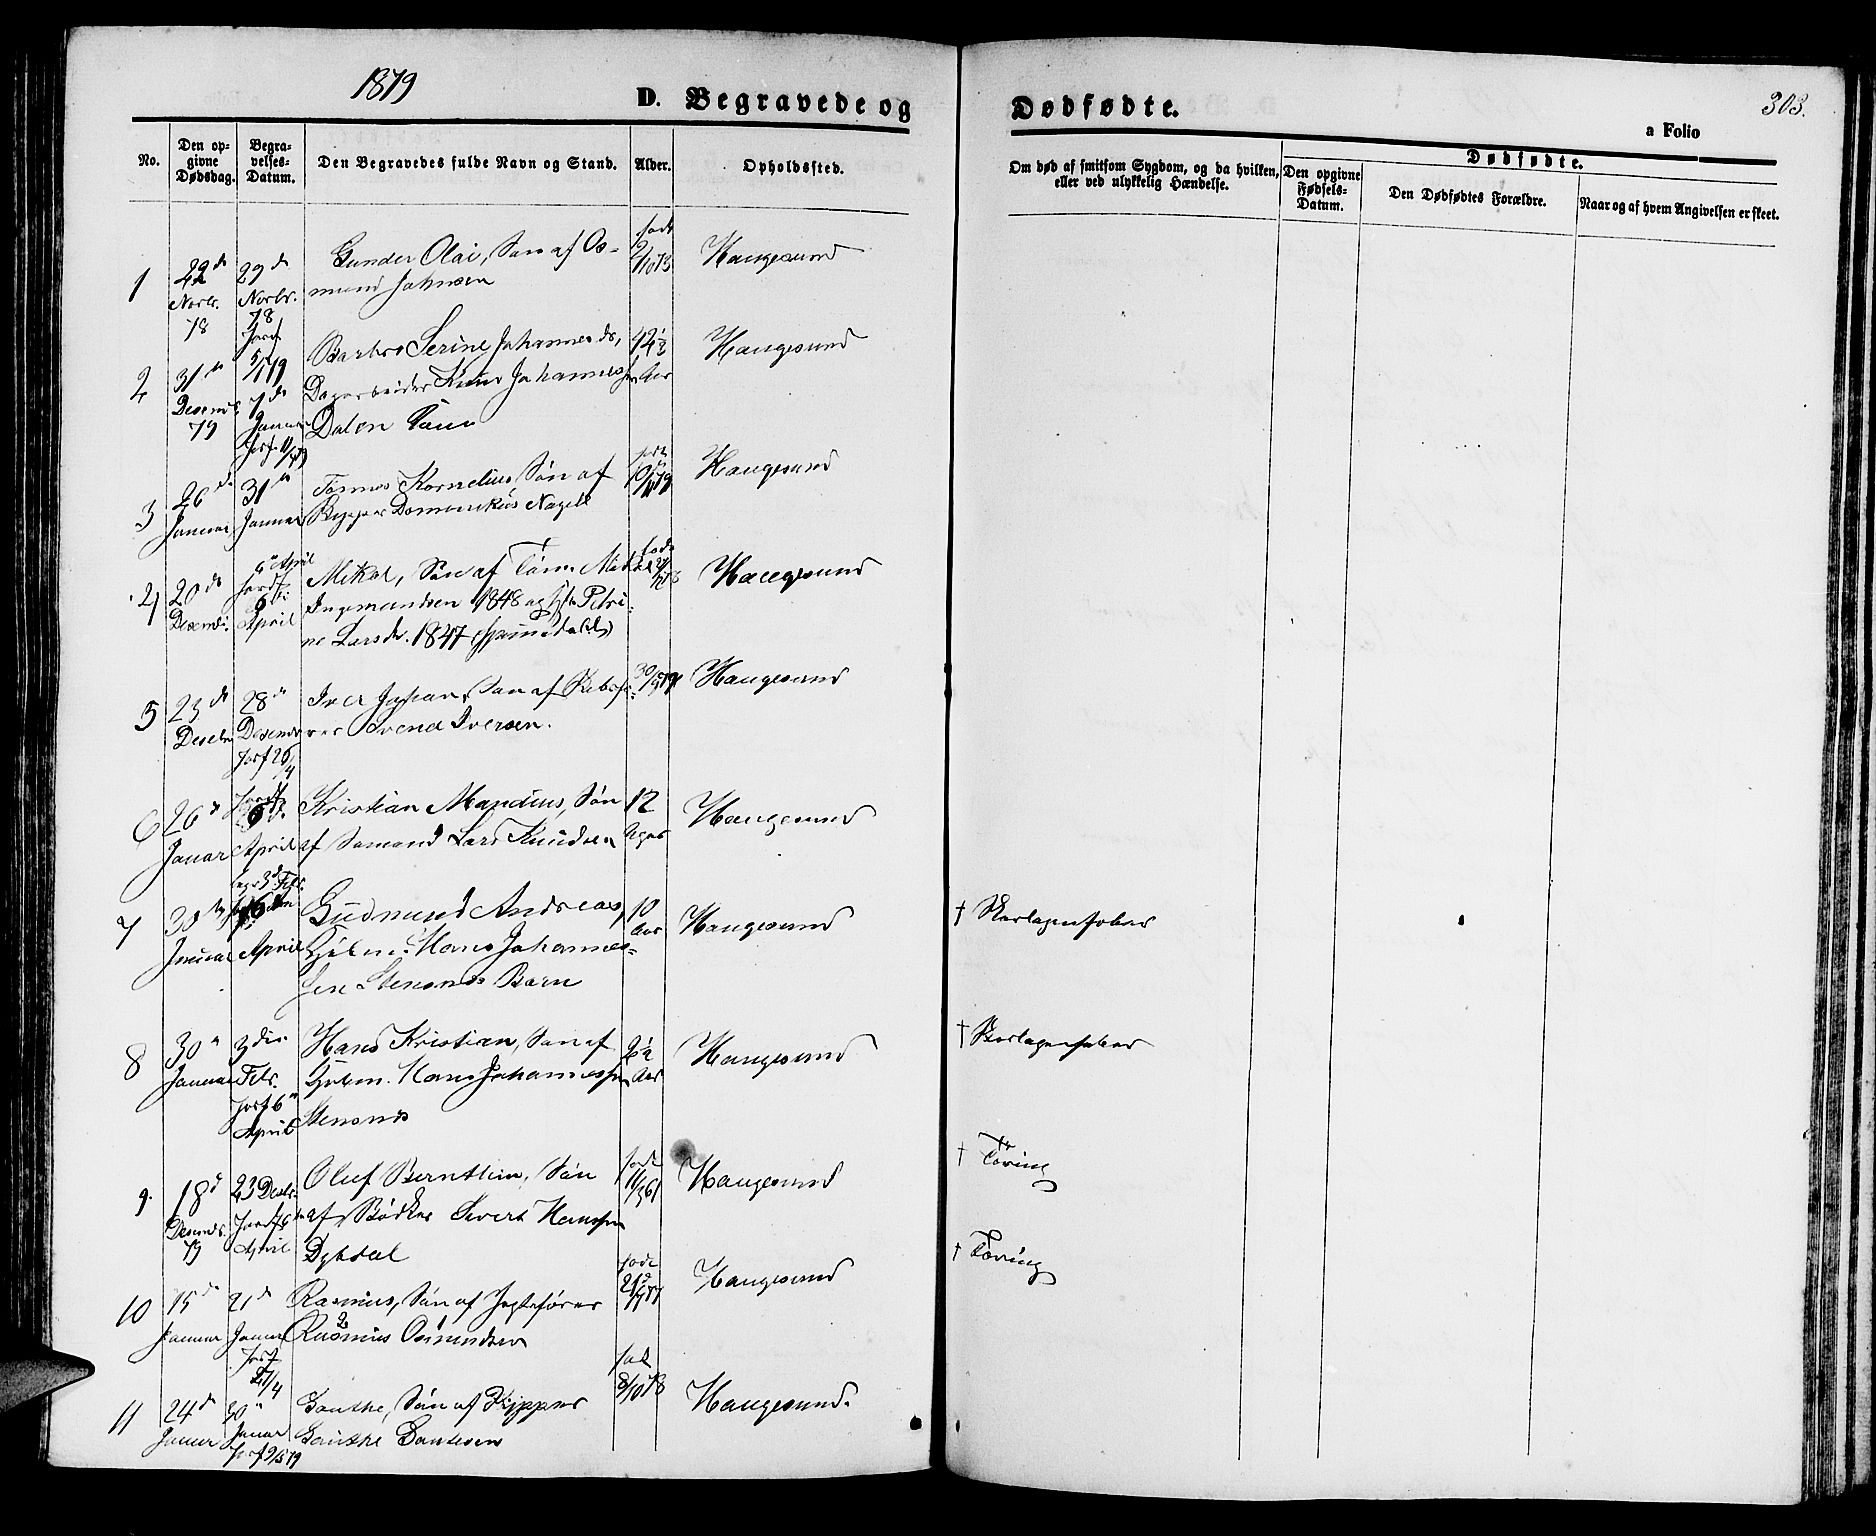 1879
D. Begravede og
Dødfødte.
303.
a Folio
No.
Den op-
givne
Dødsdag.
Begra-
velses-
Datum.
Den Begravedes fulde Navn og Stand.
Alder.
Opholdssted.
Om død af smitsom Sygdom, og da hvilken,
eller ved ulykkelig Hændelse.
Dødfødte.
Den opgivne
Fødsels-
Datum.
Den Dødfødtes Forældre.
Naar og af hvem Angivelsen er skeet.
1
22de
Novbr.
78
29de
Novbr.
78
Jordf
5/1 79
Gunder Olai, Søn af Os-
mund Johnsen
født
2/10 73
Haugesund
2
31te
Desemb.
79
7de
Januar
Jorf.
Barbro Serine Johannesdr,
Dagarbeider Knud Johannessen
Dalen
42½
Aar
Haugesund
3
26de
Januar
31te
Januar
Tønnes Kornelius, Søn af
Skipper Domenikus Nagell
Haugesund
4
20de
Desemb.
April
Jordf
6te
April
Mikal, Søn af
Ingemundsen 1848 og Petri-
ne Larsdr. 1847
født
Haugesund
5
23de
Deseb
28de
Desemb
Jorf 26/4
Iver Johan, Søn af Skibsfø-
rer Svend Iversen.
Haugesund
6
26de
Januar
Jordf
6te
April
Kristian Mandius, Søn
af Sømand Lars Knudsen
12
Uger
Haugesund
7
30te
Januar
begr 3de Febr.
6te
April
Gudmund Andreas,
Hans Johannes-
sen Stensnes Barn
10
Aar
Haugesund
† Skarlagensfeber
8
30te
Januar
3die
Febr.
Jorf 6te
April
Hans Kristian, Søn af
Hans Johannessen
Stensnes
2½
Aar
Haugesund
† Skarlagensfeber
9.
18de
Desemb.
79
23 Desbr.
Jordf 6te
April
Oluf Bernthin, Søn
af Bødker Sivert Hanssen
Dybdal
født
11/3 61
Haugesund
† Tæring
10
15de
Januar
21de
Januar
Jorf
27/4
Rasmus, Søn af Jagtefører
Rasmus Osmundsen
født
Haugesund
† Tæring
11
24de
Januar
30te
Januar
Jorf 9/5 79
Gauthe, Søn af Skipper
Gauthe Gautesen
fød
8/10 78
Haugesund.